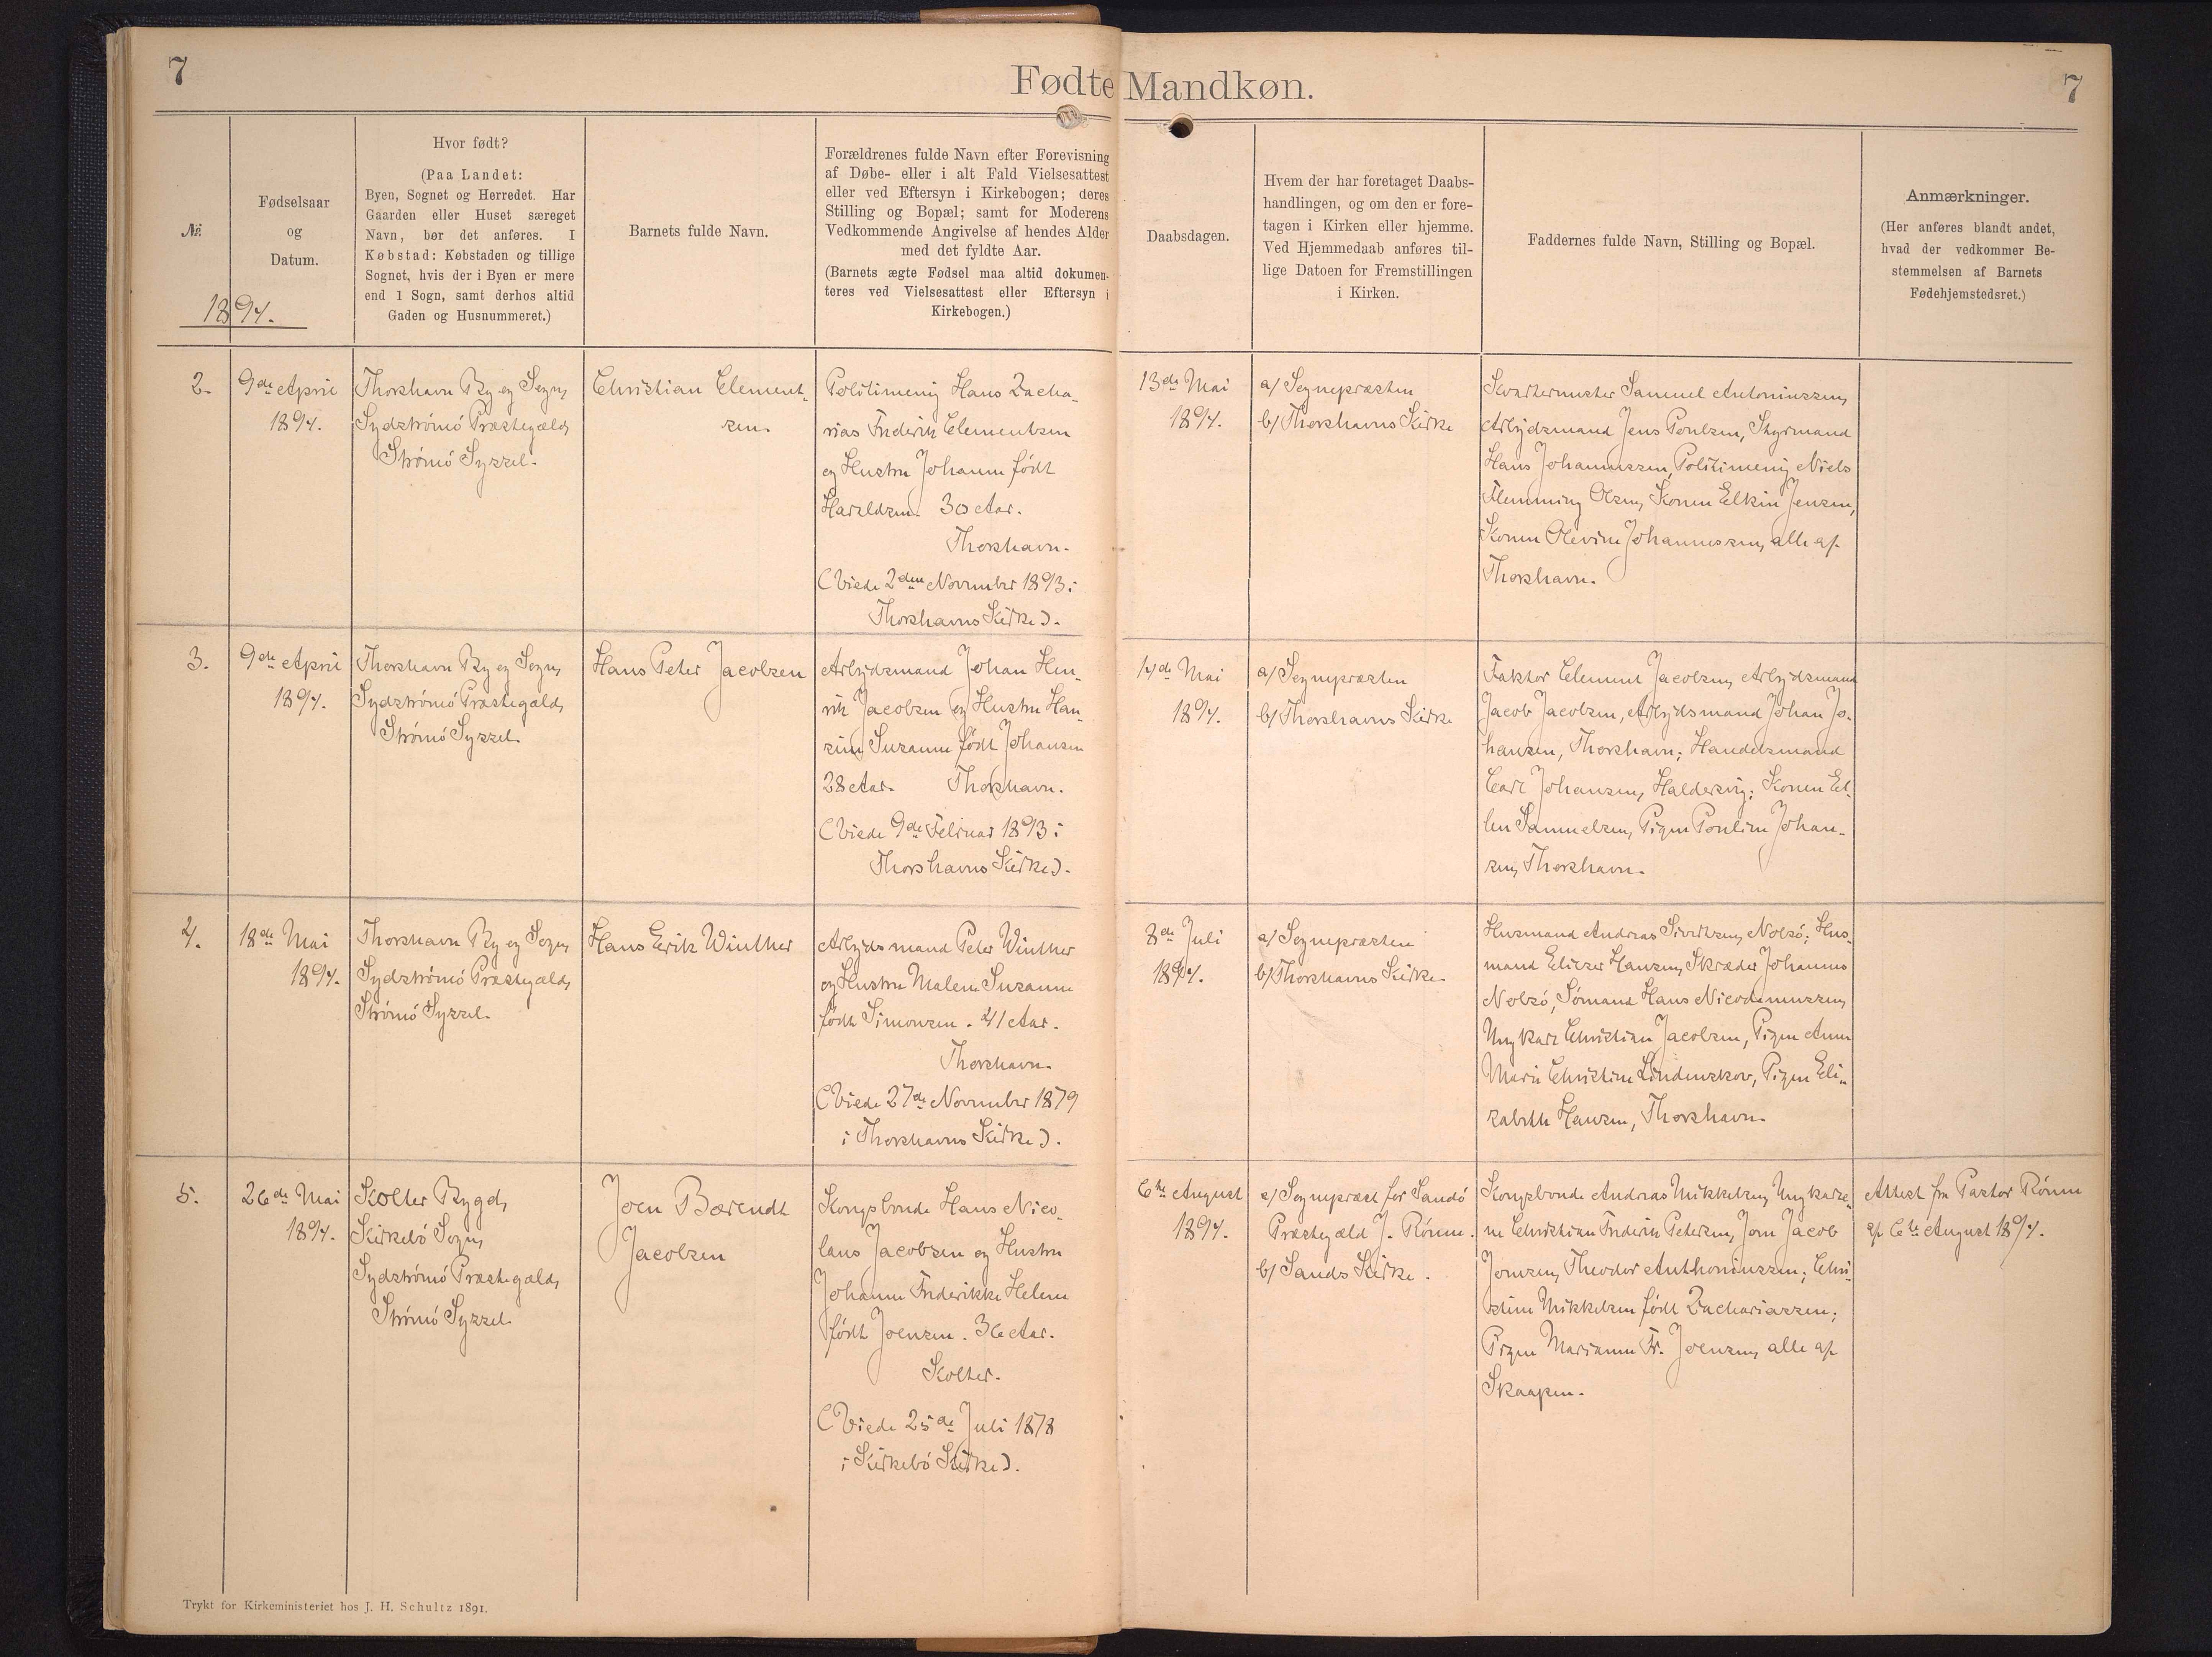 7
Fødte Mandkøn.
7
№
1894.
Fødselsaar
og
Datum.
Hvor født?
(Paa Landet:
Byen, Sognet og Herredet. Har
Gaarden eller Huset særeget
Navn, bør det anføres. I
Købstad: Købstaden og tillige
Sognet, hvis der i Byen er mere
end 1 Sogn, samt derhos altid
Gaden og Husnummeret.)
Barnets fulde Navn.
Forældrenes fulde Navn efter Forevisning
af Døbe- eller i alt Fald Vielsesattest
eller ved Eftersyn i Kirkebogen; deres
Stilling og Bopæl; samt for Moderens
Vedkommende Angivelse af hendes Alder
med det fyldte Aar.
(Barnets ægte Fødsel maa altid dokumen-
teres ved Vielsesattest eller Eftersyn i
Kirkebogen.)
Daabsdagen.
Hvem der har foretaget Daabs-
handlingen, og om den er fore-
tagen i Kirken eller hjemme.
Ved Hjemmedaab anføres til-
lige Datoen for Fremstillingen
i Kirken.
Faddernes fulde Navn, Stilling og Bopæl.
Anmærkninger.
(Her anføres blandt andet,
hvad der vedkommer Be-
stemmelsen af Barnets
Fødehjemstedsret.)
2.
9de April
1894.
Thorshavn By og Sogn,
Sydstrømø Præstegæld,
Strømø Syssel.
Christian Clement-
sen.
Politimenig Hans Zacha-
rias Frederik Clementsen
og Hustru Johanne født
Haraldsen. 30 Aar.
Thorshavn.
(Viede 2den November 1893 i
Thorshavns Kirke).
13de Mai
1894.
a/ Sognepræsten
b/ Thorshavns Kirke
Kvartermester Samuel Antoniussen,
Arbejdsmand Jens Poulsen, Styrmand
Hans Johannessen, Politimenig Niels
Flemming Olsen, Konen Elkin Jensen,
Konen Olevine Johannessen, alle af
Thorshavn.
3.
9de April
1894.
Thorshavn By og Sogn,
Sydstrømø Præstegæld,
Strømø Syssel.
Hans Peter Jacobsen
Arbejdsmand Johan Hen-
rik Jacobsen og Hustru Han-
sine Susanne født Johansen
28 Aar. Thorshavn.
(Viede 9de Februar 1893 i
Thorshavns Kirke).
14de Mai
1894.
a/ Sognepræsten
b/ Thorshavns Kirke
Faktor Clement Jacobsen, Arbejdsmand
Jacob Jacobsen, Arbejdsmand Johan Jo-
hansen, Thorshavn; Handelsmand
Carl Johansen, Haldersvig; Konen El-
len Samuelsen, Pigen Pouline Johan-
sen, Thorshavn.
4.
18de Mai
1894.
Thorshavn By og Sogn,
Sydstrømø Præstegæld,
Strømø Syssel.
Hans Erik Winther
Arbejdsmand Peter Winther
og Hustru Malene Susanne
født Simonsen. 41 Aar.
Thorshavn.
(Viede 27de November 1879
i Thorshavns Kirke).
8de Juli
1894.
a/ Sognepræsten
b/ Thorshavns Kirke.
Husmand Andreas Sivertsen, Nolsø; Hus-
mand Eliezer Hansen, Skræder Johannes
Nolsø, Sømand Hans Nicodemussen,
Ungkarl Christian Jacobsen, Pigen Anne
Marie Christine Lindenskov, Pigen Eli-
sabeth Hansen, Thorshavn.
5.
26de Mai
1894.
Kolter Bygd,
Kirkebø Sogn,
Sydstrømø Præstegæld,
Strømø Syssel.
Joen Barendt
Jacobsen
Kongsbonde Hans Nico-
laus Jacobsen og Hustru
Johanne Frederikke Helene
født Joensen. 36 Aar.
Kolter.
(Viede 25de Juli 1878
i Kirkebø Kirke).
6te August
1894.
a/ Sognepræst for Sandø
Præstegæld J. Rønne.
b/ Sands Kirke.
Kongsbonde Andreas Mikkelsen, Ungkarle-
ne Christian Frederik Petersen, Joen Jacob
Joensen, Theodor Anthoniussen; Chri-
stine Mikkelsen født Zachariassen;
Pigen Marianne Fr. Joensen, alle af
Skaapen.
Attest fra Pastor Rønne
af 6te August 1894.
Trykt for Kirkeministeriet hos J. H. Schultz 1891.